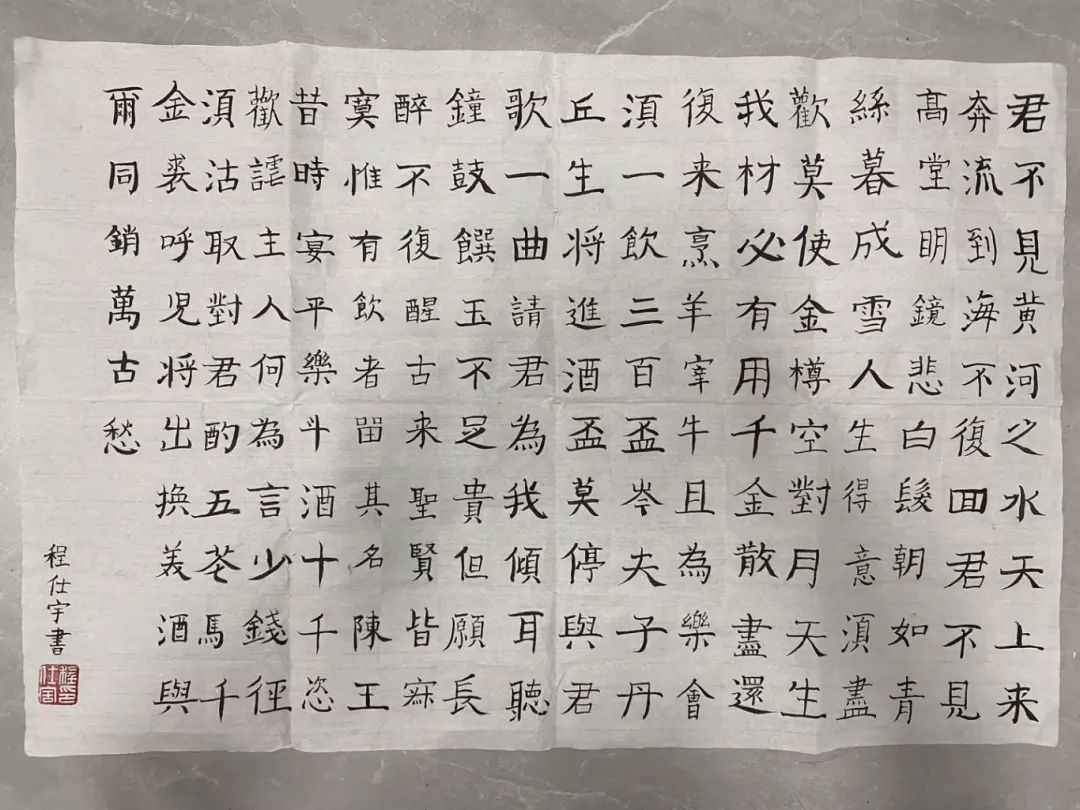 君不見黄河之水天上来
奔流到海不復回君不見
髙堂眀鏡悲白髮朝如青
絲暮成雪人生得意須盡
歡莫使金樽空對月天生
我材必有用千金散盡還
復来烹羊宰牛且為樂會
須一飲三百盃岑夫子丹
丘生将進酒盃莫停與君
歌一曲請君為我傾耳聽
鐘鼓饌玉不足貴但願長
醉不復醒古来聖賢皆寂
寞惟有飲者留其名陳王
昔時宴平樂斗酒十千恣
歡謔主人何為言少錢徑
須沽取對君酌五花馬千
金裘呼児将出換美酒與
爾同銷萬古愁
程仕宇書